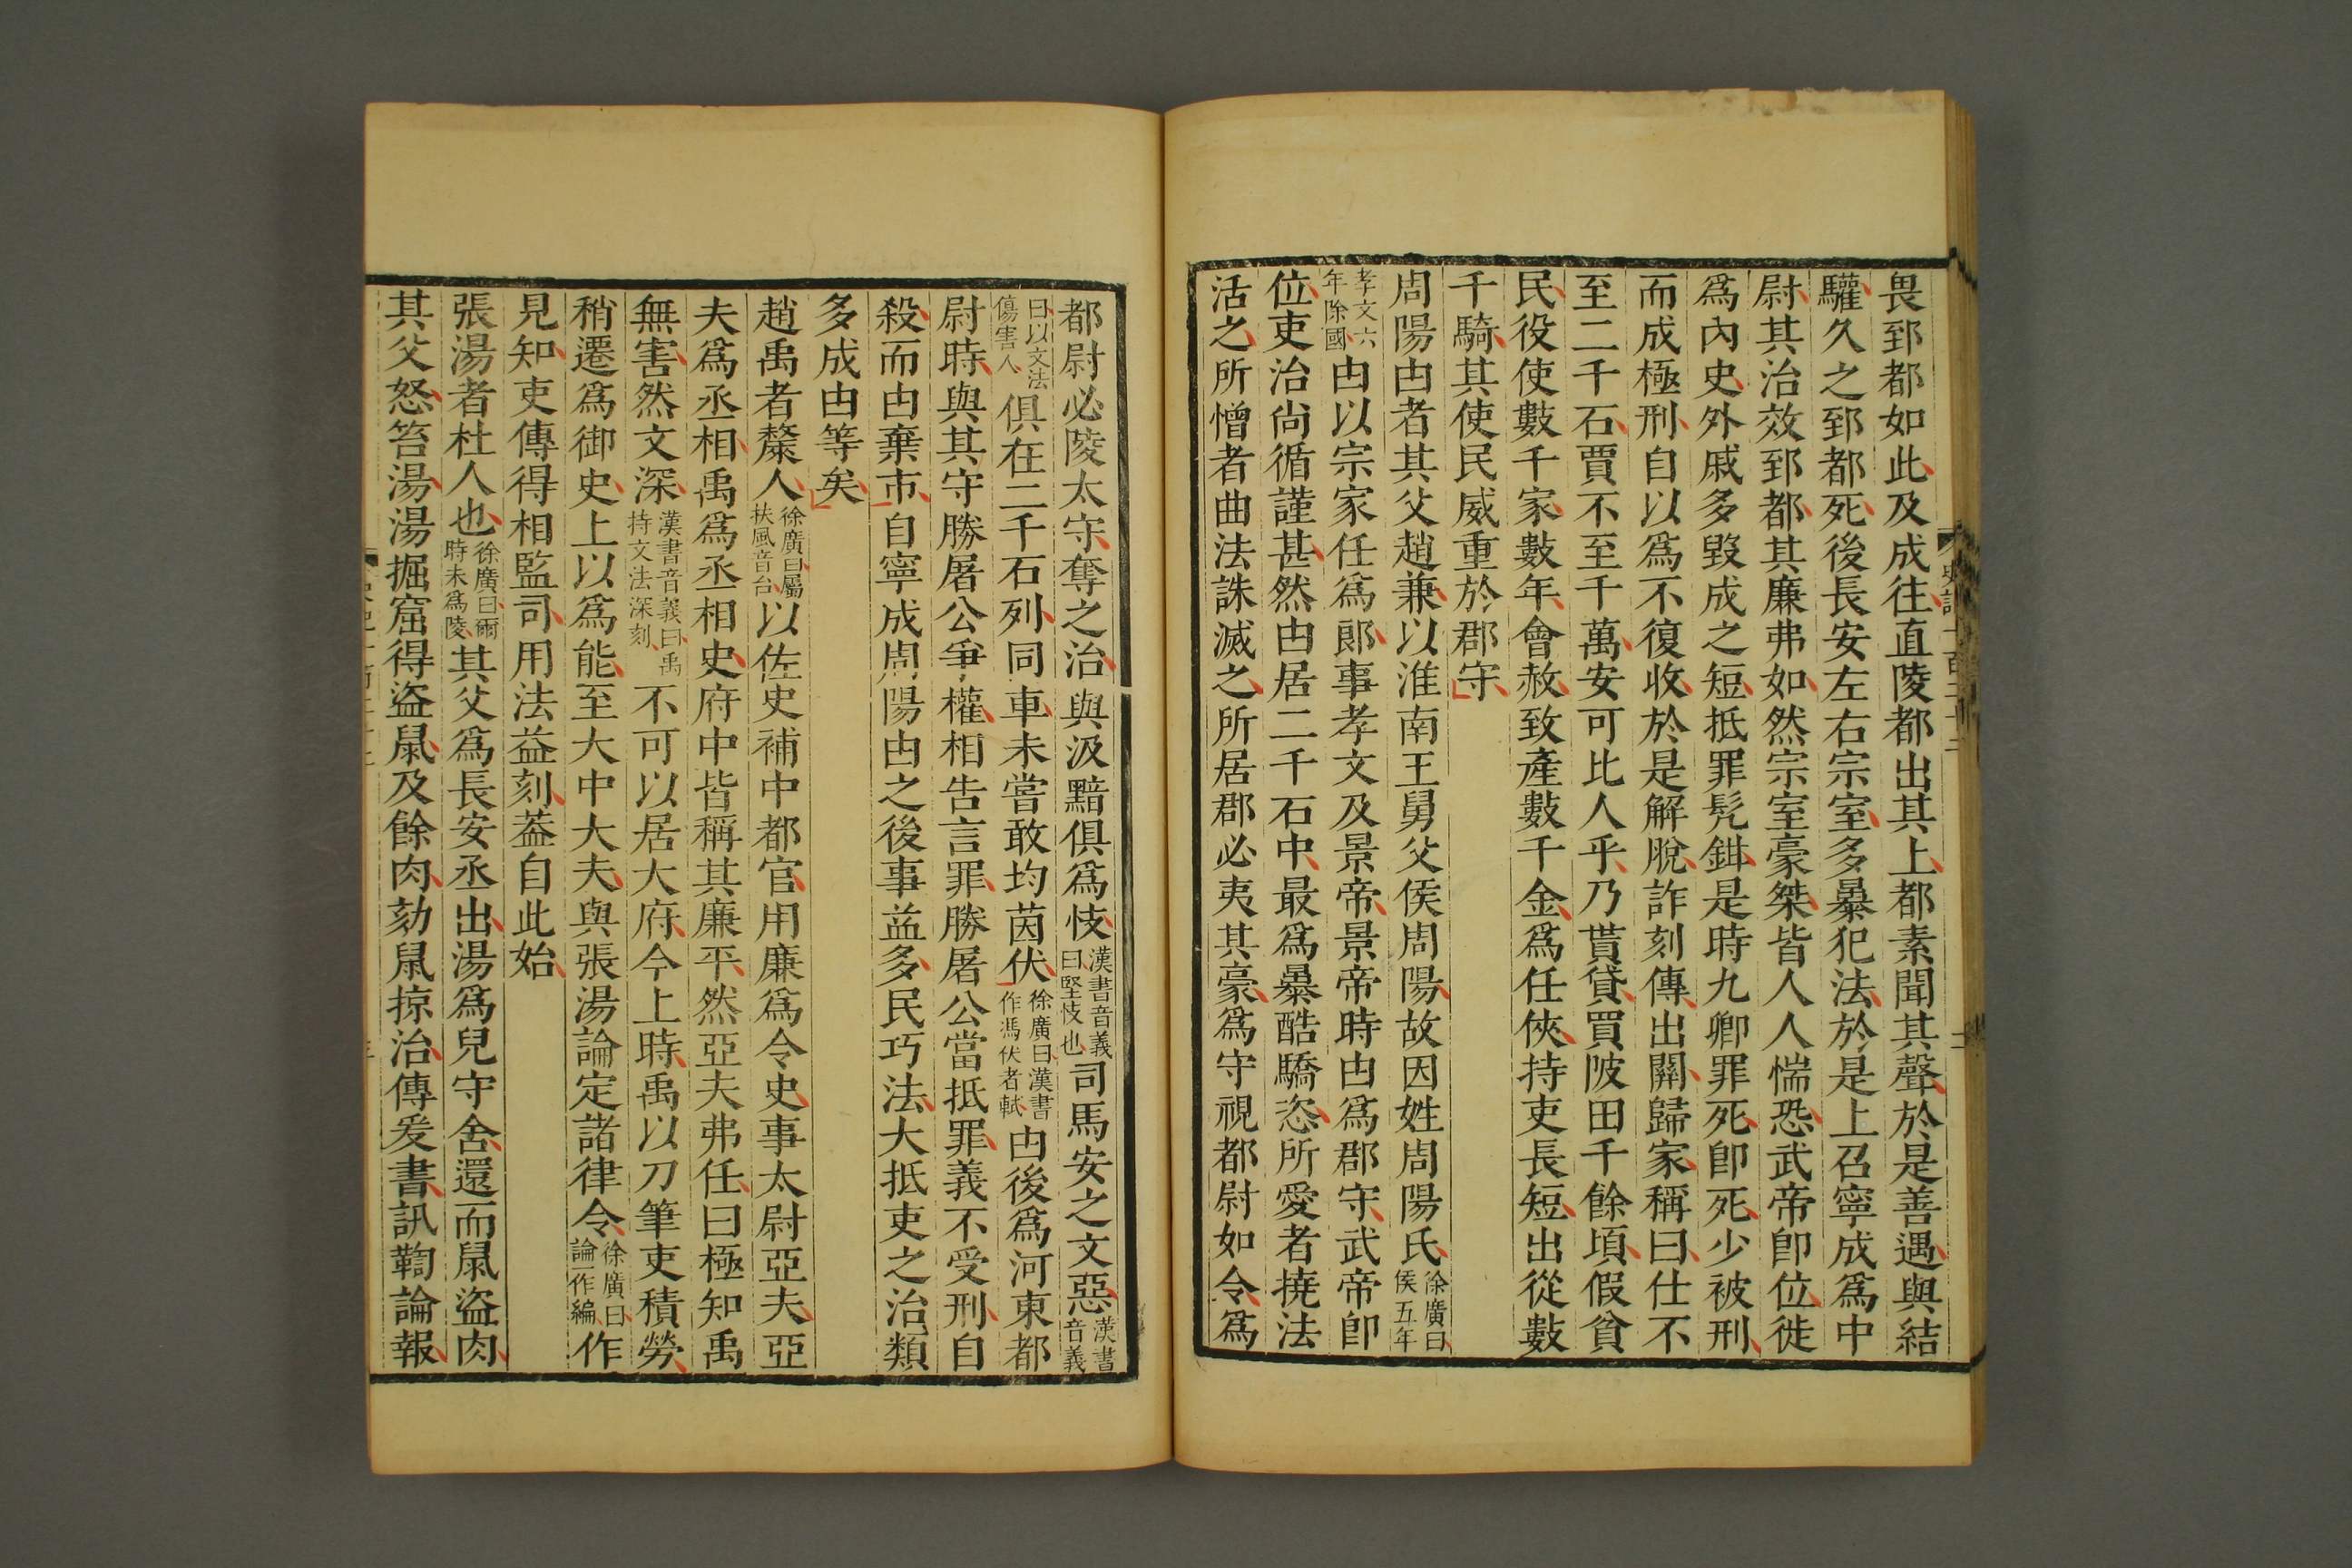 畏郅都如此及成往直陵都出其上都素聞其聲於是善遇與結
驩久之郅都死後長安左右宗室多暴犯法於是上召寧成爲中
尉其治效郅都其廉弗如然宗室豪桀皆人人惴恐武帝卽位徙
爲內史外戚多毀成之短抵罪髠鉗是時九卿罪死卽死少被刑
而成極刑自以爲不復收於是解脫詐刻傳出關歸家稱曰仕不
至二千石賈不至千萬安可比人乎乃貰貸買陂田千餘頃假貧
民役使數千家數年會赦致產數千金爲任俠持吏長短出從數
千騎其使民威重於郡守
周陽由者其父趙兼以淮南王舅父侯周陽故因姓周陽氏徐廣曰侯五年
孝文六年除國由以宗家任爲郎事孝文及景帝景帝時由爲郡守武帝卽
位吏治尚循謹甚然由居二千石中最爲暴酷驕恣所愛者撓法
活之所憎者曲法誅滅之所居郡必夷其豪爲守視都尉如令爲
都尉必陵太守奪之治與汲黯俱爲忮漢書音義曰堅忮也司馬安之文惡漢書音義
曰以文法傷害人俱在二千石列同車未嘗敢均茵伏徐廣曰漢書作馮伏者軾由後爲河東都
尉時與其守勝屠公爭權相告言罪勝屠公當抵罪義不受刑自
殺而由棄市自寧成周陽由之後事益多民巧法大抵吏之治類
多成由等矣
趙禹者斄人徐廣曰屬扶風音台以佐史補中都官用廉爲令史事太尉亞夫亞
夫爲丞相禹爲丞相史府中皆稱其廉平然亞夫弗任曰極知禹
無害然文深漢書音義曰禹持文法深刻不可以居大府今上時禹以刀筆吏積勞
稍遷爲御史上以爲能至大中大夫與張湯論定諸律令徐廣曰論一作編作
見知吏傳得相監司用法益刻葢自此始
張湯者杜人也徐廣曰爾時未爲陵其父爲長安丞出湯爲兒守舍還而鼠盜肉
其父怒笞湯湯掘窟得盜鼠及餘肉劾鼠掠治傳爰書訊鞫論報